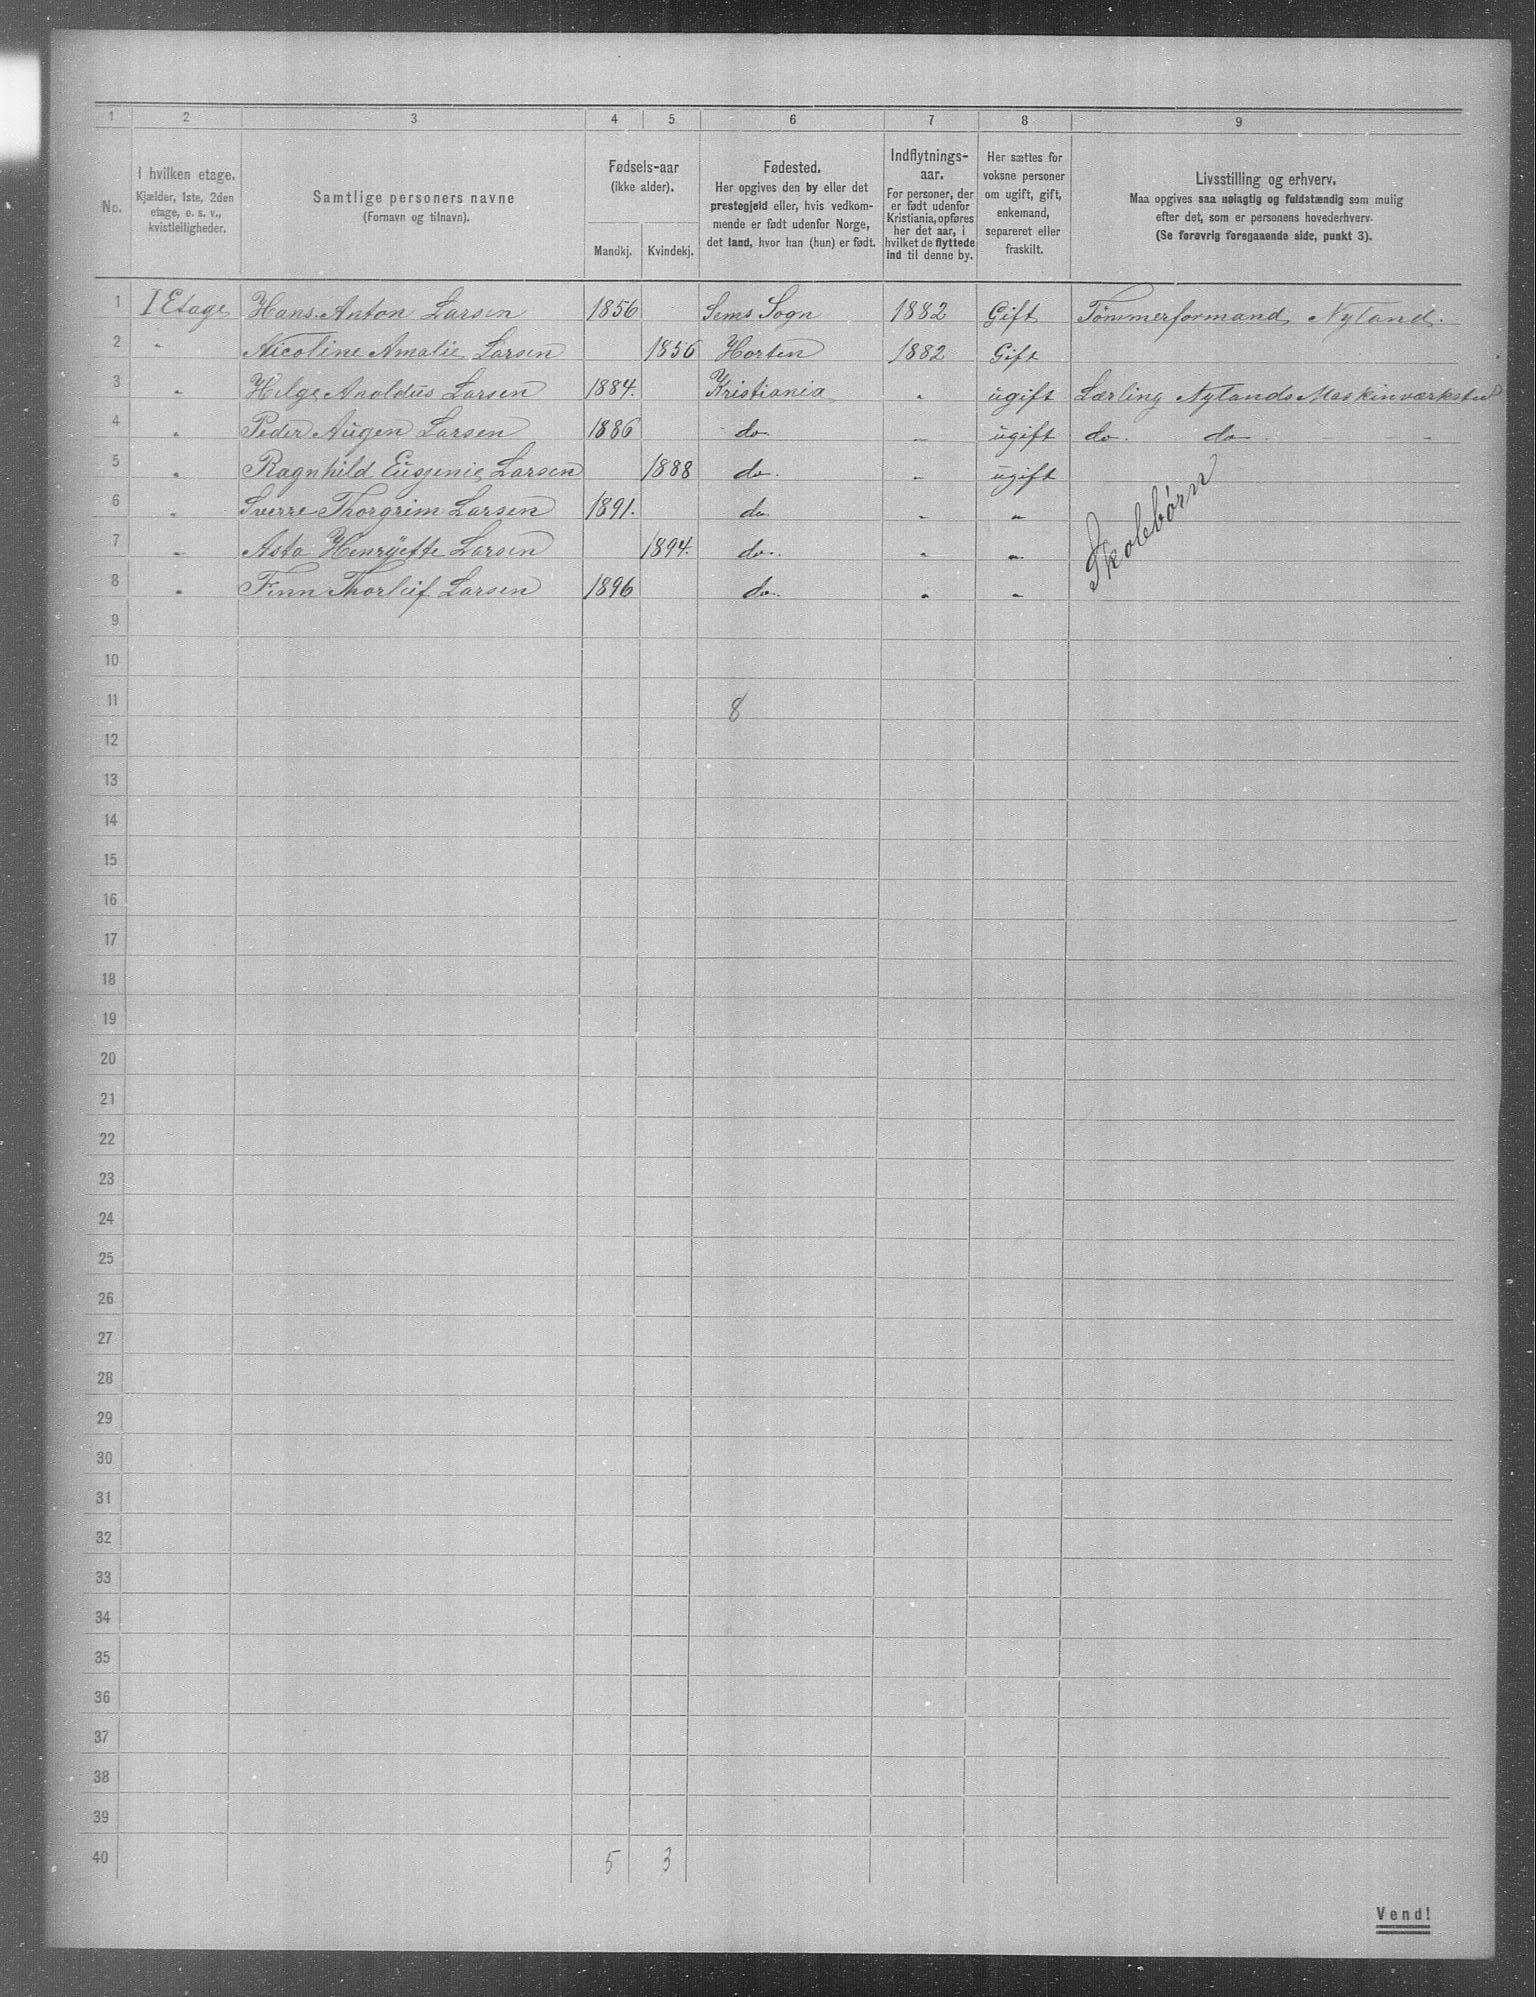 1 2 3 4 5 6 7 8 9
No.
I hvilken etage.
Kjælder, 1ste, 2den
etage, o. s. v.,
kvistleiligheder.
Samtlige personers navne
(Fornavn og tilnavn).
Fødsels-aar
(ikke alder).
Mandkj. Kvindekj.
Fødested.
Her opgives den by eller det
prestegjeld eller, hvis vedkom-
mende er født udenfor Norge,
det land, hvor han (hun) er født.
Indflytnings-
aar.
For personer, der
er født udenfor
Kristiania, opføres
her det aar, i
hvilket de flyttede
ind til denne by.
Her sættes for
voksne personer
om ugift, gift,
enkemand,
separeret eller
fraskilt.
Livsstilling og erhverv.
Maa opgives saa nøiagtig og fuldstændig som mulig
efter det, som er personens hovederhverv.
(Se forøvrig foregaaende side, punkt 3).
1 I Etage Hans Anton Larsen 1856 Sems Sogn 1882 Gift Tømmerformand, Nyland.
2 " Nicoline Amalie Larsen 1856 Horten 1882 Gift
3 " Helge Anoldus Larsen 1884. Kristiania " ugift Lærling Nylands Maskinværksted
4 " Peder Augen Larsen 1886 do " ugift do. do
5 " Ragnhild Eugenie Larsen 1888 do. " ugift
6 " Sverre Thorgrim Larsen 1891. do " "
7 " Asta Henryette Larsen 1894. do. " "
8 " Finn Thorleif Larsen 1896 do. " "
Skolebørn
9
10
11 8
12
13
14
15
16
17
18
19
20
21
22
23
24
25
26
27
28
29
30
31
32
33
34
35
36
37
38
39
40 5 3
Vend!